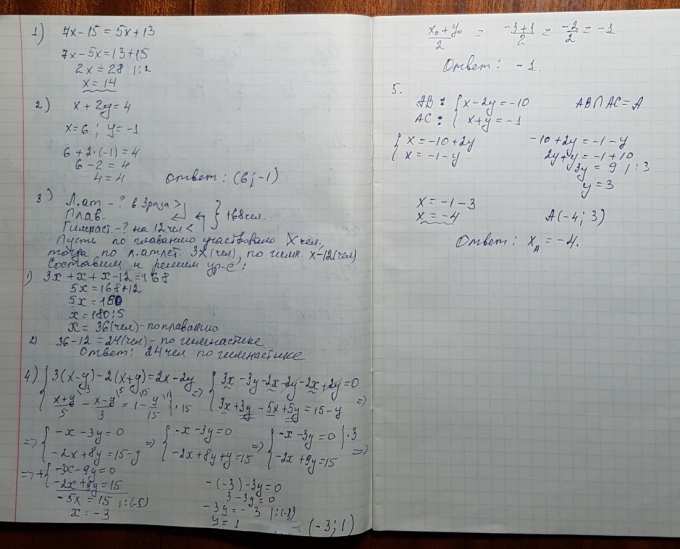 1) 7x - 15 = 5x + 13
7x - 5x = 13 + 15
2x = 28 | : 2
x = 14
2) x + 2y = 4
x = 6 ; y = -1
6 + 2·(-1) = 4
6 - 2 = 4
4 = 4
Ответ: (6; -1)
3) Л.ат - ? в 3 раза >
Плав.
Гимнаст - ? на 12 чел <
} 168 чел.
Пусть по плаванию участвовало x чел,
тогда по л.атлет. 3x (чел), по гимн. x-12 (чел)
Составим и решим ур-е:
1) 3x + x + x - 12 = 168
5x = 168 + 12
5x = 180
x = 180 : 5
x = 36 (чел) - по плаванию
2) 36 - 12 = 24 (чел) - по гимнастике
Ответ: 24 чел по гимнастике
4) { 3(x-y) - 2(x+y) = 2x - 2y => { 3x - 3y - 2x - 2y - 2x + 2y = 0
(x+y)/5 - (x-y)/3 = 1 - y/15 | · 15 3x + 3y - 5x + 5y = 15 - y =>
=> { -x - 3y = 0 => { -x - 3y = 0 => { -x - 3y = 0 | · 3
-2x + 8y = 15 - y -2x + 8y + y = 15 -2x + 9y = 15 =>
=> + { -3x - 9y = 0
-2x + 9y = 15
-5x = 15 | : (-5)
x = -3
-(-3) - 3y = 0
3 - 3y = 0
-3y = -3 | : (-3)
y = 1
(-3; 1)
(x₀ + y₀)/2 = (-3 + 1)/2 = -2/2 = -1
Ответ: -1.
5.
AB: { x - 2y = -10 AB∩AC = A
AC: { x + y = -1
{ x = -10 + 2y -10 + 2y = -1 - y
x = -1 - y 2y + y = -1 + 10
3y = 9 | : 3
y = 3
x = -1 - 3
x = -4 A(-4; 3)
Ответ: x_A = -4.